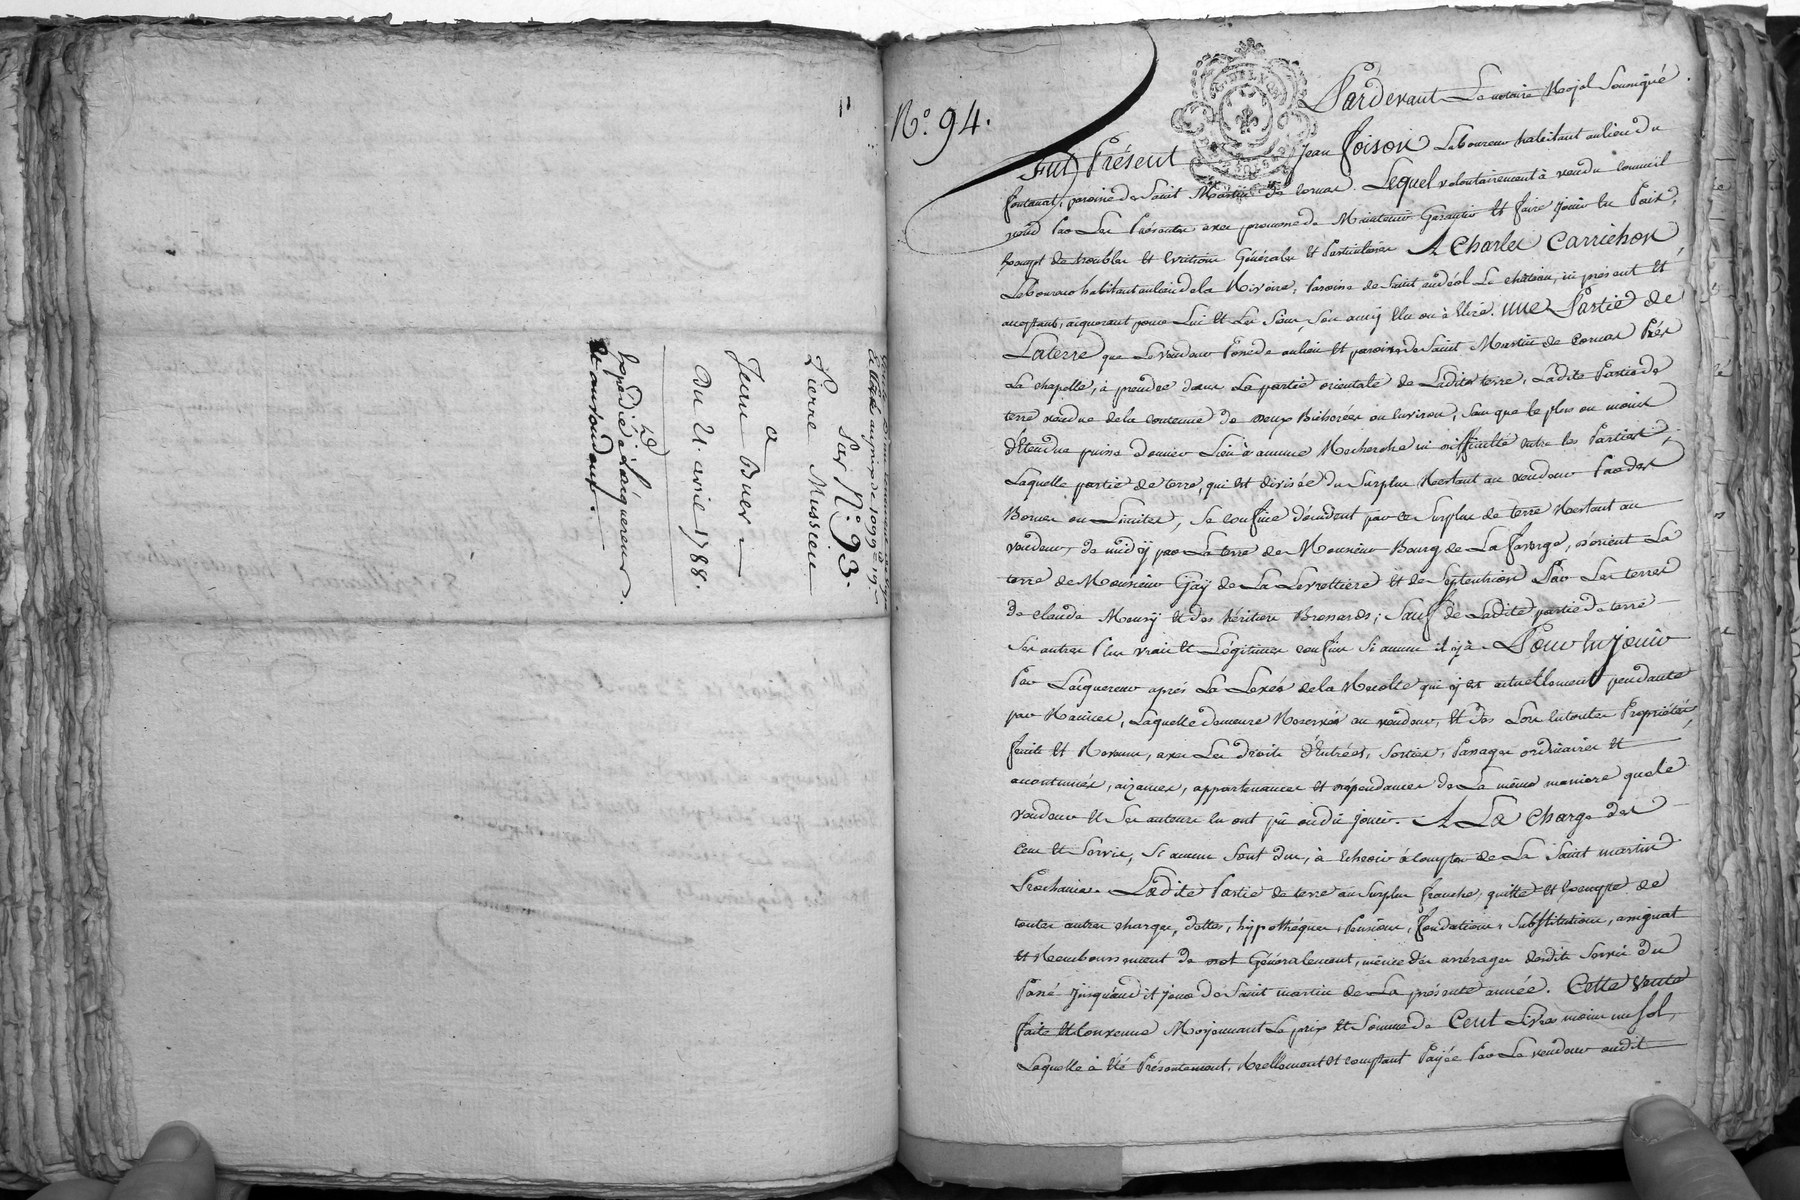 Jean Buer
a
Pierre Mussieu
Du 21. avril 1788.
Expédié à Lacquereur.
et au vendeur.
Sur N.° 93.
N.° 94.
Pardevant Le notaire Royal Soussigné
Fut Présent Jean Foison Laboureur habitant au lieu du
fontanat, paroisse de Saint Martin de Cornas. Lequel volontairement à vendu comme il
vend Par Les Présentes avec promesse de Maintenir Garantir Et faire Jouir En Paix,
Exempt de troubles Et Evictions Générales Et Particulieres A Charles Carrichon
Laboureur habitant au lieu de la Rivoire, Paroisse de Saint andéol Le château, ici présent Et
acceptant, acquerant pour Lui Et Les Siens, Son amy Elu ou à Elire. une Partie de
La terre que Le vendeur Possede au lieu Et paroisse de Saint Martin de Cornas Près
La chapelle, à prendre dans La partie orientale de Ladite terre, Ladite Partie de
terre vendue de la contenue de deux Bicherées ou Environ, Sans que le plus ou moins
d'Etendue puisse donner Lieu à aucune Recherche ni difficulté entre les Parties,
Laquelle partie de terre, qui Est divisée du Surplus Restant au vendeur Par des
Bornes ou Limites, Se confine d'occident par ce Surplus de terre Restant au
vendeur, de midy par La terre de Monsieur Bourg de La faverge, d'orient La
terre de Monsieur Gay de La Levrettiere Et de Septentrion Par Les terres
de Claude Moury Et des héritiers Bronards; Sauf de Ladite partie de terre
Ses autres Plus vrais Et Légitimes confins Si aucuns il y à. Pour En jouir
Par Lacquereur après La Levée de la Recolte qui y Est actuellement pendante
par Racines, Laquelle demeure Reservée au vendeur, Et dès Lors En toutes Propriétés,
fruits Et Revenus, avec Les droits d'Entrées, Sorties, Passages ordinaires Et
accoutumés, aizances, appartenances Et dépendances de La même maniere que le
vendeur Et Ses auteurs En ont pû ou dû jouir. A La Charge des
Cens Et Servis, Si aucuns Sont dus, à Echeoir à compter de La Saint martin
Prochaine. Ladite Partie de terre au Surplus franche, quitte Et Exempte de
toutes autres charges, dettes, hypothéques, Pensions, fondations, Substitutions, assignat
Et Remboursement de dot Généralement, même des arrérages desdits Servis du
Passé jusqu'audit jour de Saint martin de La présente année. Cette vente
faite Et Convenue Moyennant Le prix Et Somme de Cent Livres moins un Sol,
Laquelle à Eté Présentement, Reellement Et comptant Payée Par Le vendeur audit